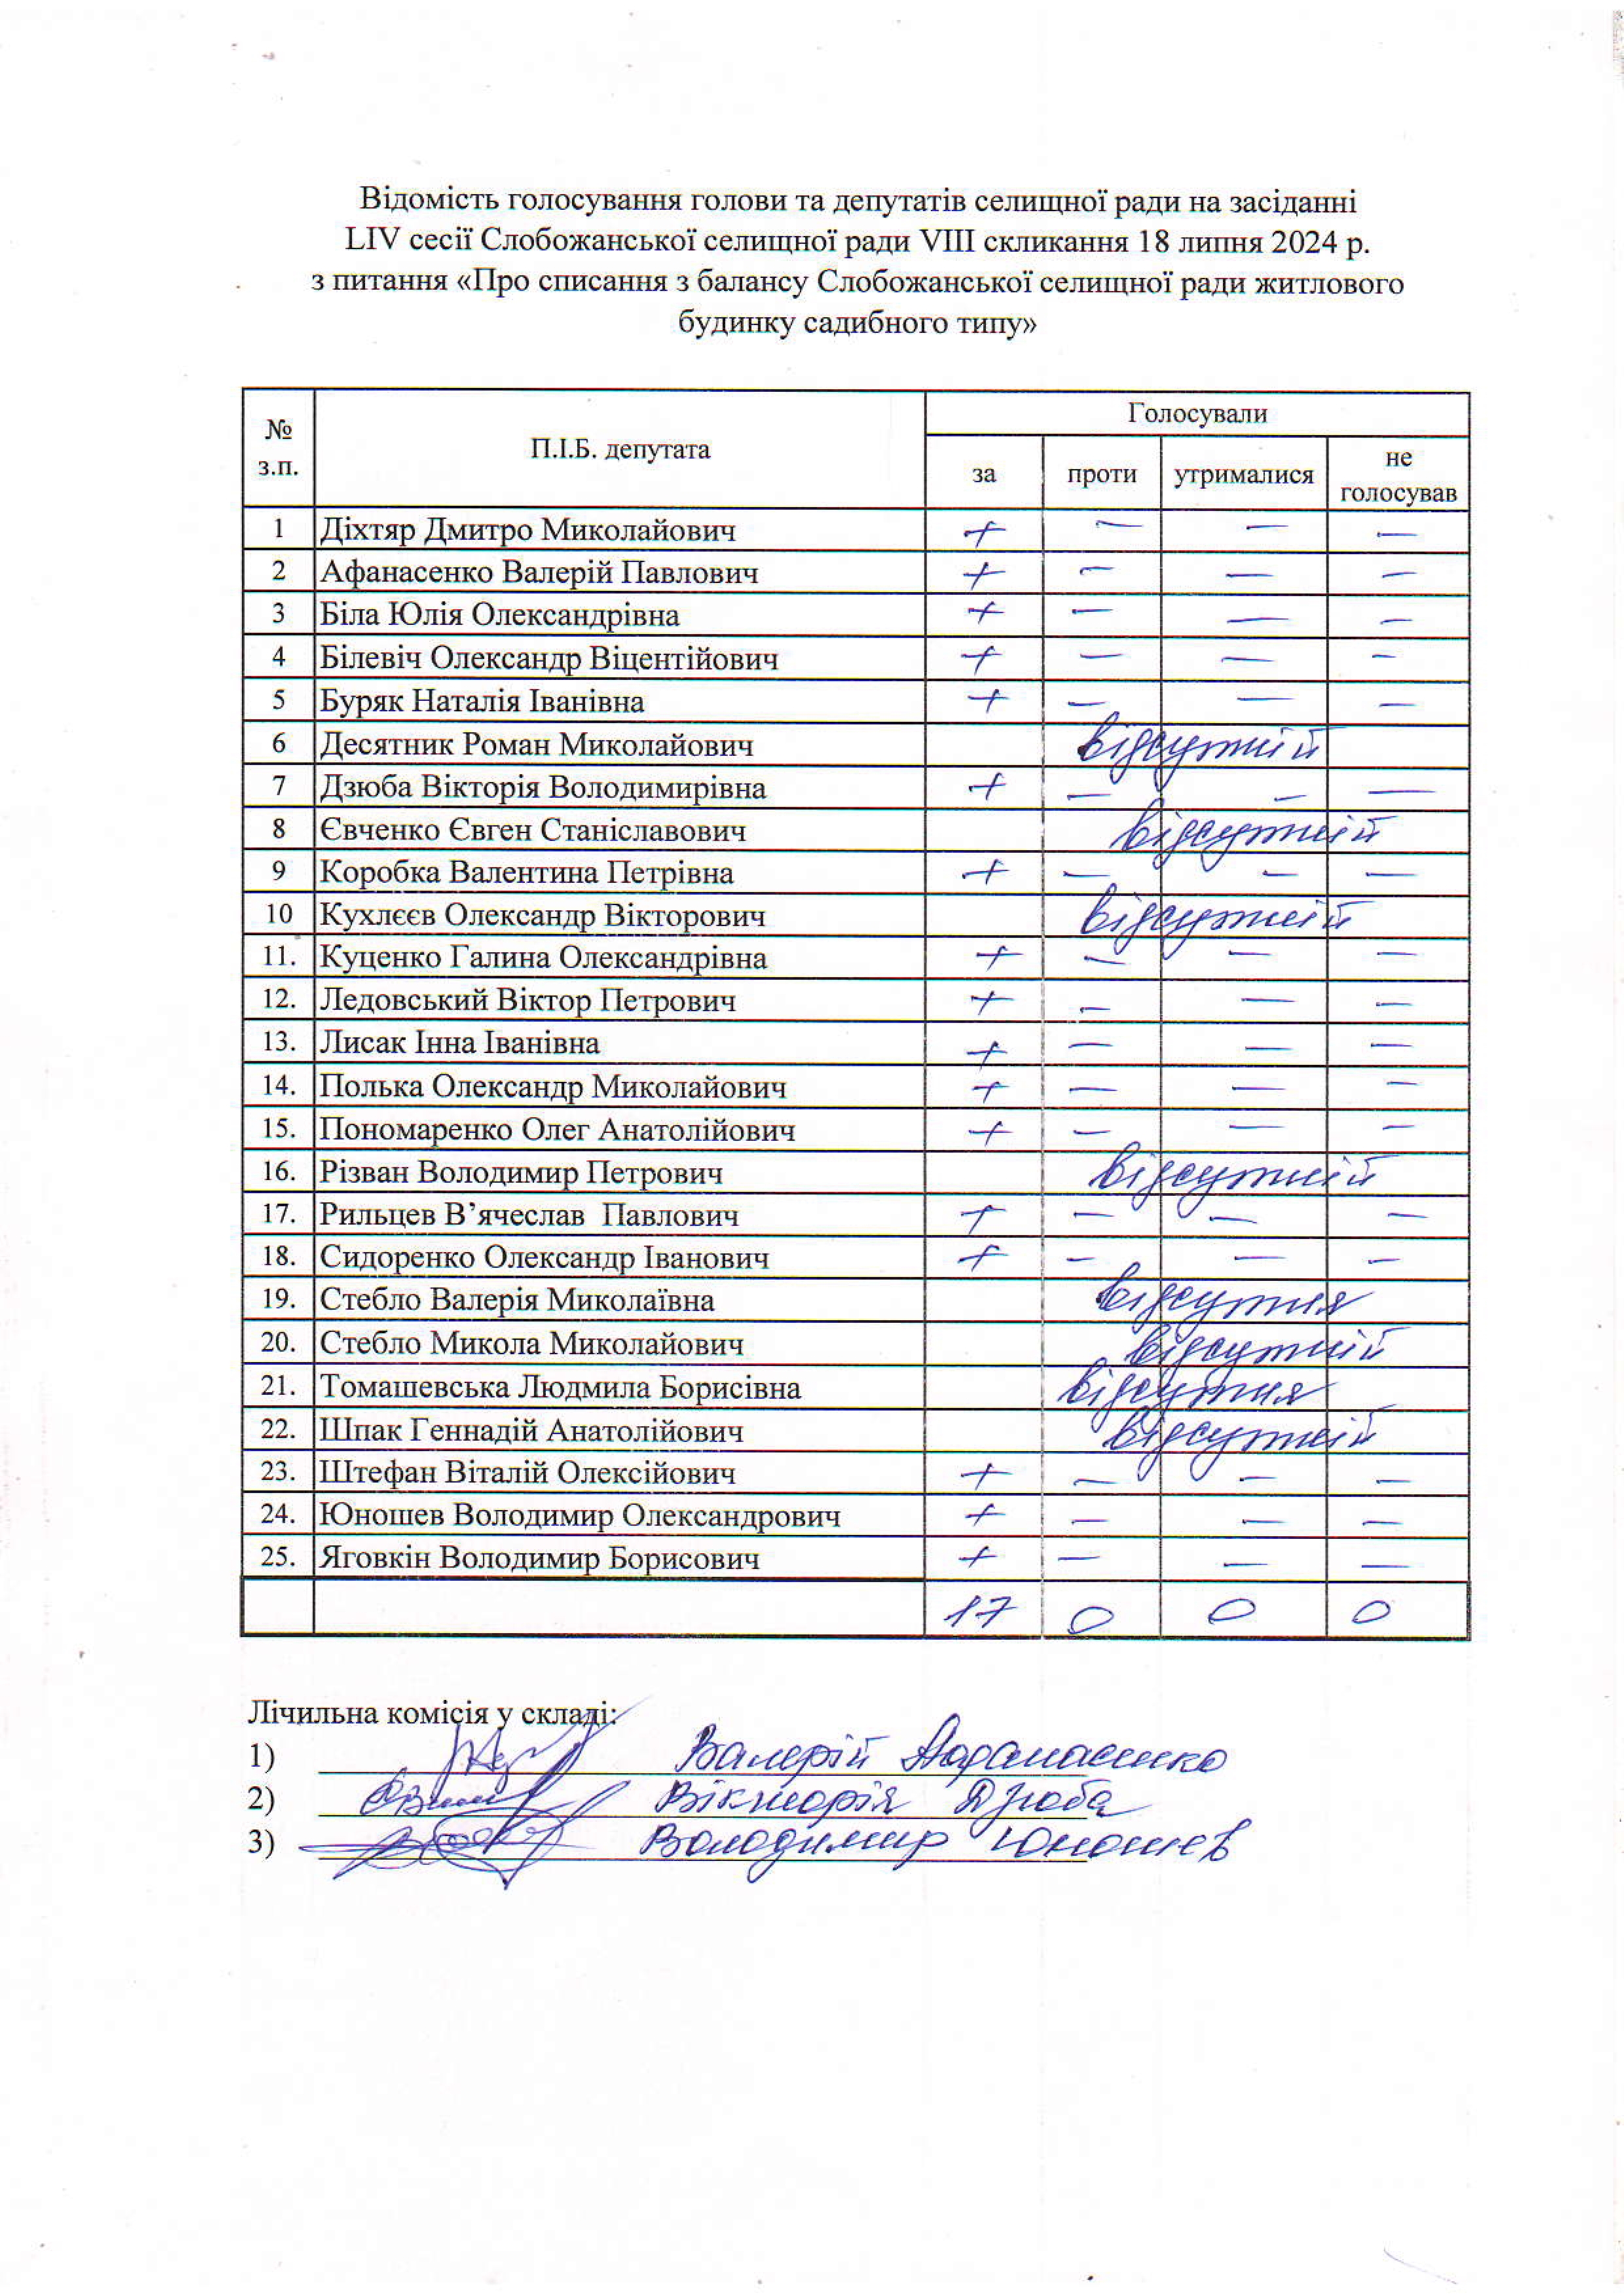 Відомість голосування голови та депутатів селищної ради на засіданні
LIV сесії Слобожанської селищної ради VIII скликання 18 липня 2024 р.
з питання «Про списання з балансу Слобожанської селищної ради житлового
будинку садибного типу»
№ з.п. П.І.Б. депутата Голосували
за проти утрималися не голосував
1 Діхтяр Дмитро Миколайович + — — —
2 Афанасенко Валерій Павлович + — — —
3 Біла Юлія Олександрівна + — — —
4 Білевіч Олександр Віцентійович + — — —
5 Буряк Наталія Іванівна + — — —
6 Десятник Роман Миколайович відсутній
7 Дзюба Вікторія Володимирівна + — — —
8 Євченко Євген Станіславович відсутній
9 Коробка Валентина Петрівна + — — —
10 Кухлєєв Олександр Вікторович відсутній
11. Куценко Галина Олександрівна + — — —
12. Ледовський Віктор Петрович + — — —
13. Лисак Інна Іванівна + — — —
14. Полька Олександр Миколайович + — — —
15. Пономаренко Олег Анатолійович + — — —
16. Різван Володимир Петрович відсутній
17. Рильцев В’ячеслав Павлович + — — —
18. Сидоренко Олександр Іванович + — — —
19. Стебло Валерія Миколаївна відсутня
20. Стебло Микола Миколайович відсутній
21. Томашевська Людмила Борисівна відсутня
22. Шпак Геннадій Анатолійович відсутній
23. Штефан Віталій Олексійович + — — —
24. Юношев Володимир Олександрович + — — —
25. Яговкін Володимир Борисович + — — —
17 0 0 0
Лічильна комісія у складі:
1) Валерій Афанасенко
2) Вікторія Дзюба
3) Володимир Юношев